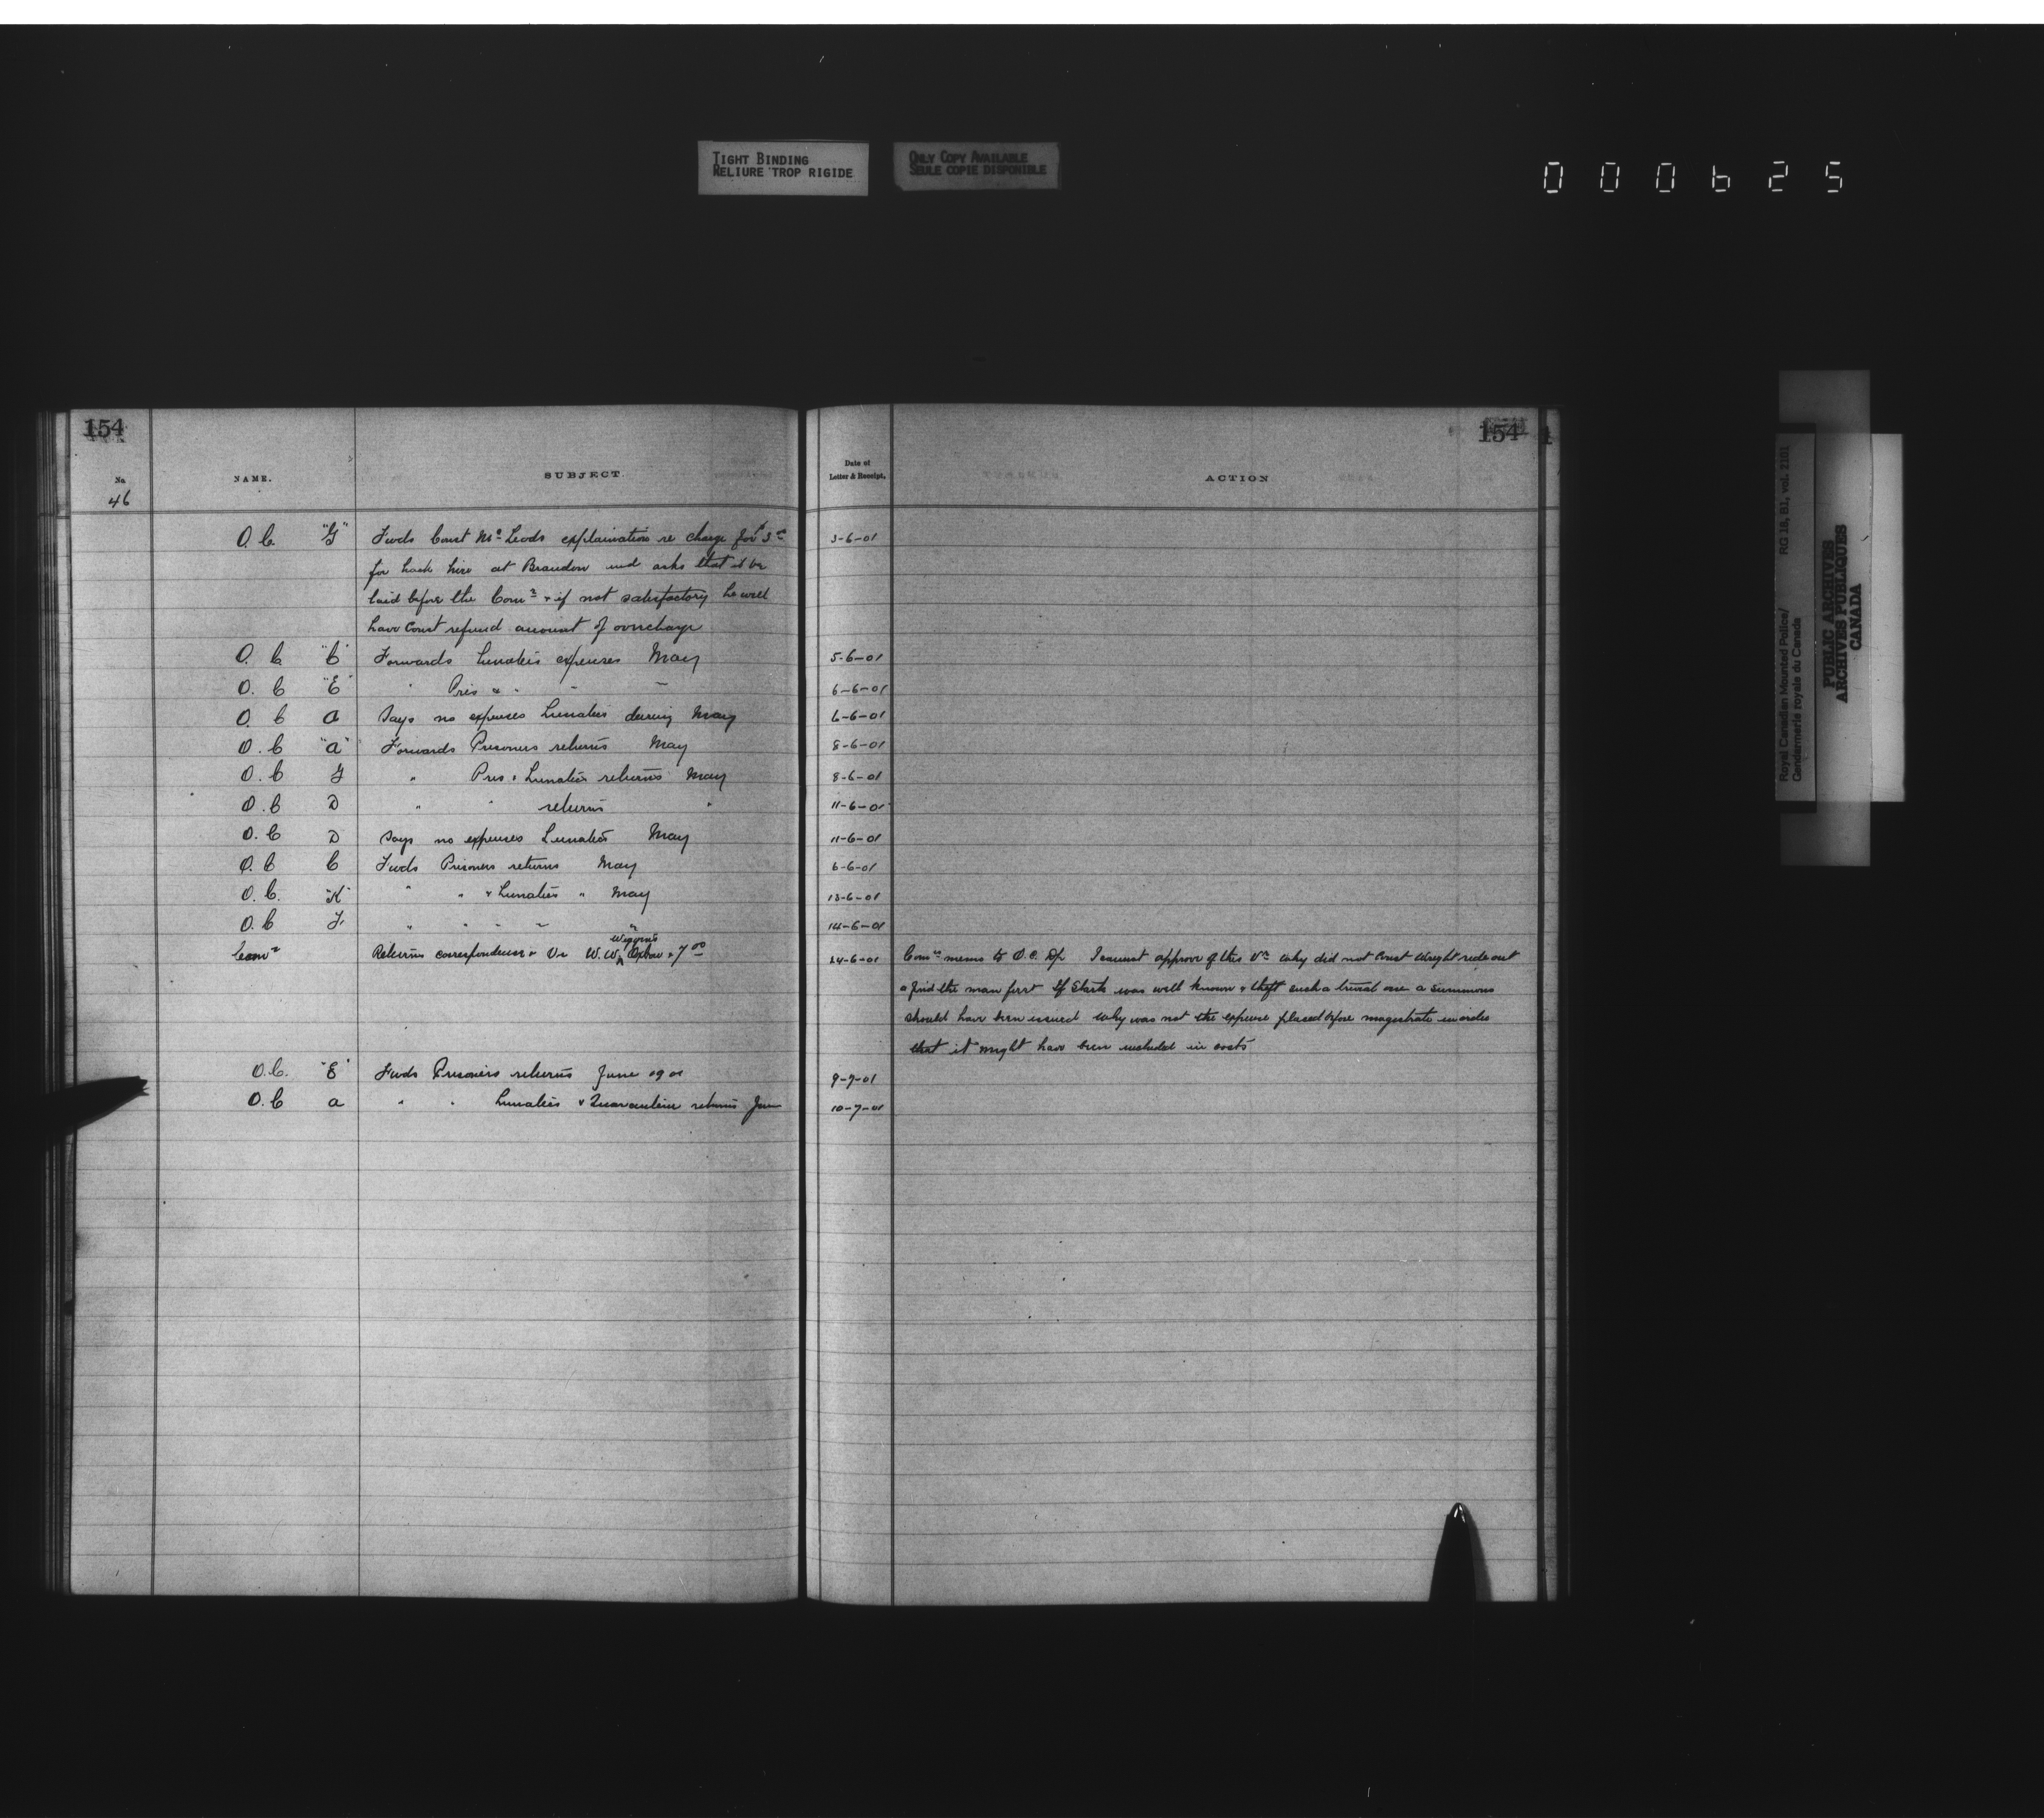 TIGHT BINDING
RELIURE TROP RIGIDE
ONLY COPY AVAILABLE
SEULE COPIE DISPONIBLE
000625
154
154
No.
NAME.
SUBJECT.
Date of
Letter & Receipt.
ACTION
46
O.C. "G" Fwds Const McLeods explaination re charge for $3.00 3-6-01
for hack hire at Brandon and asks that it be
laid before the Comr & if not satisfactory he will
have Const refund amount of overcharge
O.C. "C" Forwards Lunatics expenses May 5-6-01
O.C "E" " Pris & " " " 6-6-01
O.C A Says no expenses Lunatics during May 6-6-01
O.C "A" Forwards Prisoners returns May 8-6-01
O.C G " Pris & Lunatics returns May 8-6-01
O.C D " " returns " 11-6-01
O.C D Says no expenses Lunatics May 11-6-01
O.C C Fwds Prisoners returns May 6-6-01
O.C. "K" " " & Lunatics " May 13-6-01
O.C F. " " " " " 14-6-01
Comr Returns correspondence & Vr W.W. Wiggins Oxbow $7.00 24-6-01 Comrs memo to O.C. Dp. I cannot approve of this Vr Why did not Const Wright ride out
& find the man first If Stark was well known & theft such a trivial one a summons
should have been issued Why was not the expense placed before magistrate in order
that it might have been included in costs
O.C. "E" Fwds Prisoners returns June 1901 9-7-01
O.C A " " Lunatics & Quarantine returns June 10-7-01
Royal Canadian Mounted Police/ RG 18, B1, vol. 2101
Gendarmerie royale du Canada
PUBLIC ARCHIVES
ARCHIVES PUBLIQUES
CANADA